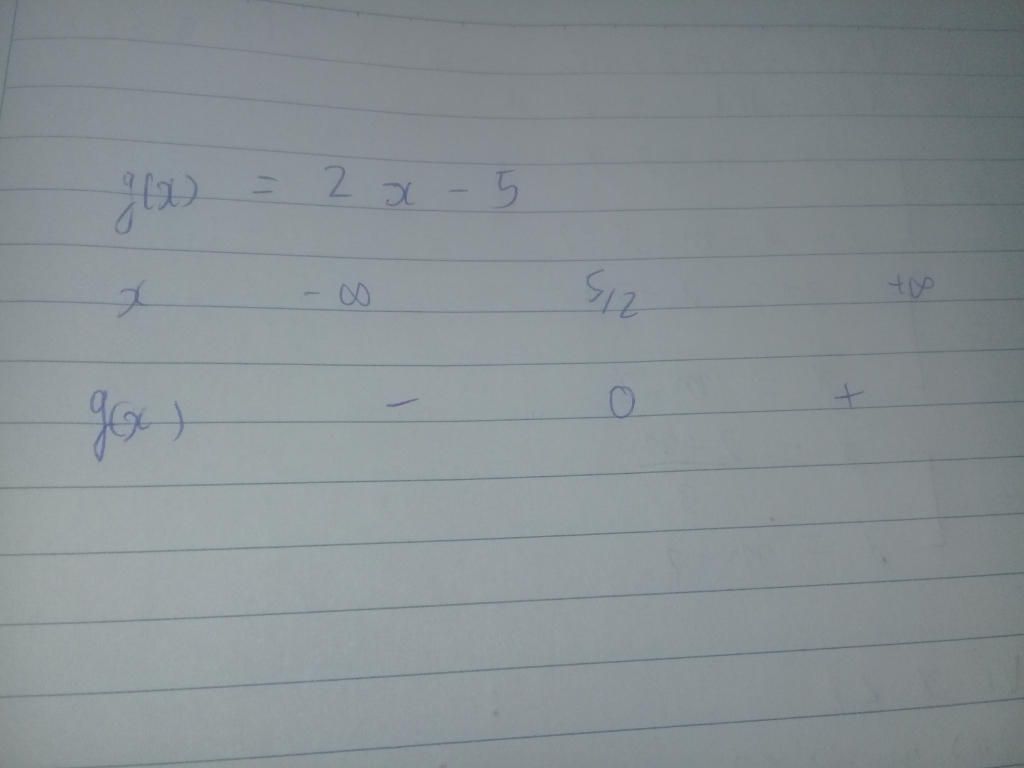 g(x) = 2x - 5
x -∞ 5/2 +∞
g(x) - 0 +